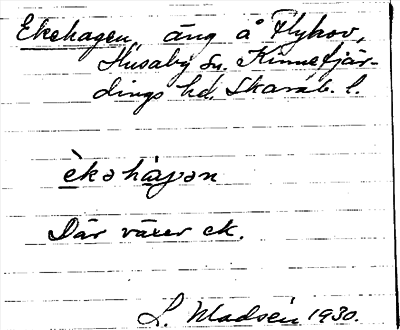 Ekehagen, äng å Flyhov,
Husaby sn. Kinnefjär-
dings hd. Skarab. l.
èkəhàɡən
Där växer ek.
L. Madsén 1930.